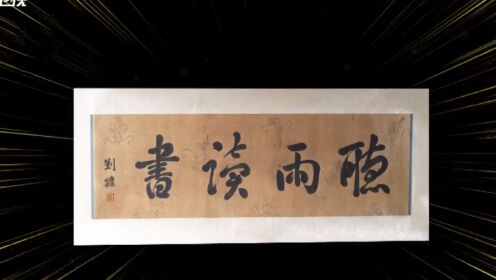 聽雨讀書
劉墉